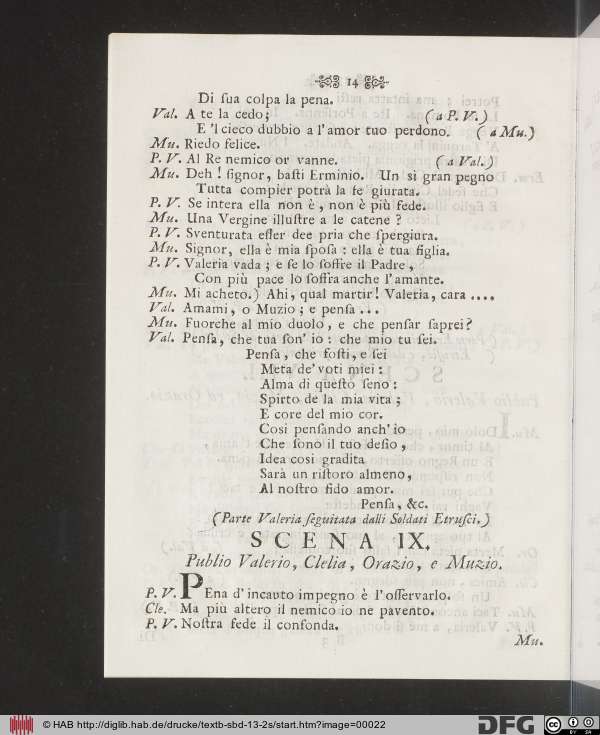 14
Di ſua colpa la pena.
Val. A te la cedo; (a P. V.)
E 'l cieco dubbio a l'amor tuo perdono. (a Mu.)
Mu. Riedo felice.
P. V. Al Re nemico or vanne. (a Val.)
Mu. Deh! ſignor, baſti Erminio. Un si gran pegno
Tutta compier potrà la fe giurata.
P. V. Se intera ella non è, non è più fede.
Mu. Una Vergine illuſtre a le catene?
P. V. Sventurata eſſer dee pria che ſpergiura.
Mu. Signor, ella è mia ſpoſa: ella è tua figlia.
P. V. Valeria vada; e ſe lo ſoffre il Padre,
Con più pace lo ſoffra anche l'amante.
Mu. Mi acheto.) Ahi, qual martir! Valeria, cara ....
Val. Amami, o Muzio; e penſa ...
Mu. Fuorche al mio duolo, e che penſar ſaprei?
Val. Penſa, che tua ſon' io: che mio tu ſei.
Penſa, che foſti, e ſei
Meta de' voti miei:
Alma di queſto ſeno:
Spirto de la mia vita;
E core del mio cor.
Cosi penſando anch' io
Che ſono il tuo deſio,
Idea cosi gradita
Sarà un riſtoro almeno,
Al noſtro fido amor.
Penſa, &c.
(Parte Valeria ſeguitata dalli Soldati Etruſci.)
SCENA IX.
Publio Valerio, Clelia, Orazio, e Muzio.
P. V. PEna d' incauto impegno è l' oſſervarlo.
Cle. Ma più altero il nemico io ne pavento.
P. V. Noſtra fede il confonda.
Mu.
© HAB http://diglib.hab.de/drucke/textb-sbd-13-2s/start.htm?image=00022
DFG
cc BY SA